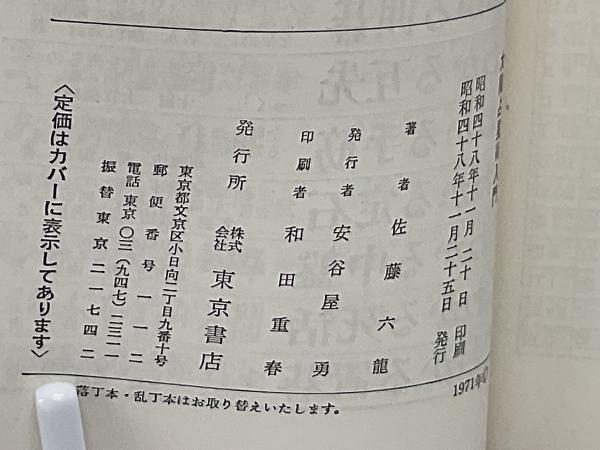 入門
昭和四十八年十一月二十日 印刷
昭和四十八年十一月二十五日 発行
著者 佐藤六龍
発行者 安谷屋勇
印刷者 和田重春
発行所 株式会社 東京書店
東京都文京区小日向二丁目九番十号
郵便番号一一二
電話 東京 〇三(九四七)二三二一
振替東京二一七四二
〈定価はカバーに表示してあります〉
1971年©
落丁本・乱丁本はお取り替えいたします。